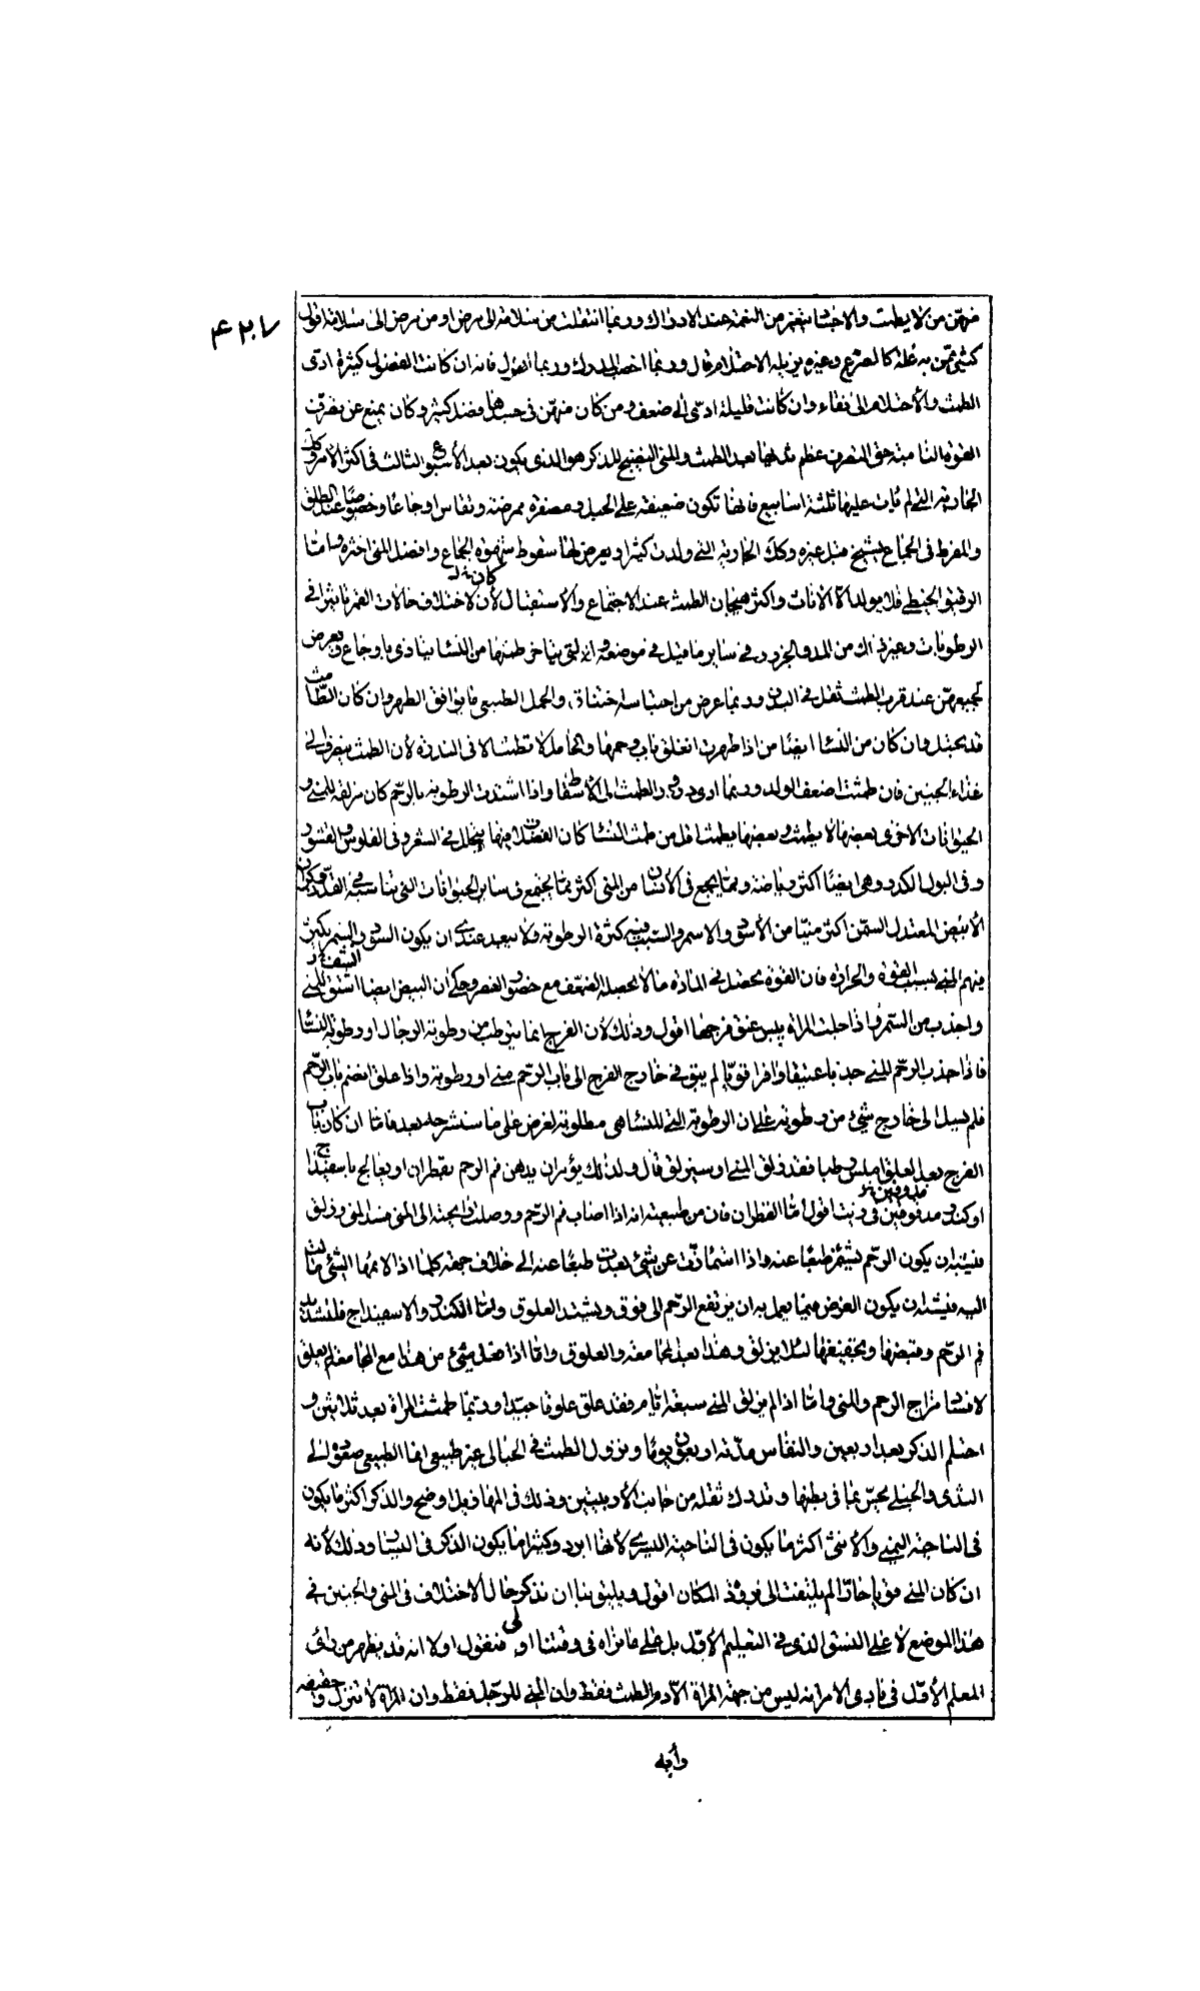 ۴۲۰۷
منهن من لا يطمث والاختتا يتغيرن من النغمة عند الادراك وربما انتقلت من سلامة الى مرض او من مرض الى سلامة اقول
كشئ ممن به علة كالصرع وغيره يزيله الاحتلام قال وربما اخصب المدرك وربما اهزل فانه ان كانت الفضول كثيرة ادى
الطمث والأحتلام الى نقاء وان كانت قليلة ادى الى ضعف ومن كان منهن فى جسدها فضل كثير وكان يمنع عن تصرف
القوة النامية حق التصرف عظم ثديها بعد الطمث والمنى النضيج للذكر هو الذى يكون بعد الأسبوع الثالث فى اكثر الأمر وكل
الجارية التى لم يأت عليها ثلثة اسابيع فانها تكون ضعيفة على الحبل ومصغرة ممرضة وتقاس اوجاعا وخصوصا عند الطلق
والمفرط فى الجماع يشيخ قبل غيره وكك الجارية التى ولدت كثيرا ويعرض لها سقوط شهوة الجماع وافضل المنى اخثره واما
الرقيق الخيطى فانه يولد الاناث واكثر هيجان الطمث عند الاجتماع والاستقبال لأن لاختلاف حالات القمر تاثيرا فى
الرطوبات وغير ذلك من المد والجزر وفى ساير ما قيل فى موضعه والتى يتاخر طمثها من النسا يتاذى باوجاع ويعرض
لجميعهن عند قرب الطمث ثقل فى البدن وربما عرض من احتباسه اختناق، والحمل الطبيعى ما يوافق الطهر وان كان الطامث
قد يحبل وان كان من النسا ايضا من اذا طهرت انغلق باب رحمها والحامل لا تطمث الا فى الندرة لأن الطمث ينصرف الى
غذاء الجنين فان طمثت اضعف الولد وربما ادى درور الطمث الى الأسقاط واذا اشتدت الرطوبة بالرحم كان مزلقة للمنى و
الحيوانات الاخرى بعضها لا يطمث وبعضها يطمث اقل من طمث النسا كان الفضلات منها يتحلل فى الشعر وفى الفلوس والقشور
وفى البول الكدر وهى ايضا اكثر رياضة ومما يجمع فى الأنسان من المنى اكثر مما يجتمع فى ساير الحيوانات التى تناسبه فى القدر وكان
الأبيض المعتدل السمن اكثر منيا من الأسود والاسمر والسبب فيه كثرة الرطوبة ولا يبعد عندى ان يكون السود والسمر يكثر
فيهم المنى بسبب القوة والحرارة فان القوة تحصل فى المادة ما لا يحصله الضعف مع خصور العنصر وحكى ان البيض ايضا اشبق للمنى
واجذب من السمر واذا حبلت المرأة يبس عنق فرجها اقول وذلك لأن الفرج انما يترطب من رطوبة الرجال او رطوبة النسا
فاذا جذب الرحم المنى جذبا عنيفا وافرا قويا لم يبق فى خارج الفرج الى باب الرحم منى او رطوبة واذا علق انضم باب الرحم
فلم يسيل الى خارج شئ من رطوبة على ان الرطوبة التى للنسا هى مطلوبة لغرض على ما سنشرحه بعد فاما ان كان باب
الفرج بعد العلق املس رطبا فقد زلق المنى او سيزلق قال ولذلك يؤمر ان يدهن فم الرحم بقطران او يعالج باسفيداج
او كندر مدفوفين فى زيت اقول اما القطران فان من طبيعته انه اذا اصاب فم الرحم ووصلت رايحته الى المنى فسد المنى وزلق
فيشبه ان يكون الرحم يشمئز طبعا عنه واذا اشمازت عن شئ بعدت طبعا عنه الى خلاف جهته كلما اذا لامها الشئ مالت
اليه فيشبه ان يكون الغرض فيما يعمل به ان يرتفع الرحم الى فوق ويشتد العلوق واما الكندر والاسفيداج فلتشديد
فم الرحم وقبضها وتجفيفها لئلا يزلق وهذا بعد المجامعة والعلوق واما اذا فعل شئ من هذا مع الجماع فلم يعلق
لافساد مزاج الرحم والمنى واما اذا لم يزلق المنى سبعة ايام فقد علق علوقا جيدا وربما طمثت المرأة بعد ثلاثين و
احتلم الذكر بعد اربعين والنفاس مدته اربعون يوما ونزول الطمث فى الحبالى غير طبيعى انما الطبيعى صعوده الى
الثدى والحبلى تحس بما فى بطنها وتدرك ثقله من جانب الأربيتين وذلك فى المهازيل اوضح والذكر اكثر ما يكون
فى الناحية اليمنى والأنثى اكثر ما يكون فى الناحية اليسرى لأنها ابرد وكثيرا ما يكون الذكر فى اليسار وذلك لأنه
ان كان المنى قويا حارا لم يلتفت الى برودة المكان اقول ويليق بنا ان نذكر حال الاختلاف فى المنى والجنين فى
هذا الموضع لا على النسق الذى فى التعليم الأول بل على ما نراه فى وقتنا اولى فنقول اولا انه قد يظهر من رائ
المعلم الأول فى بادى الامر انه ليس من جهة المرأة الا دم الطمث فقط وان المنى للرجل فقط وان المرأة لا تنزل حقيقة
وأنه